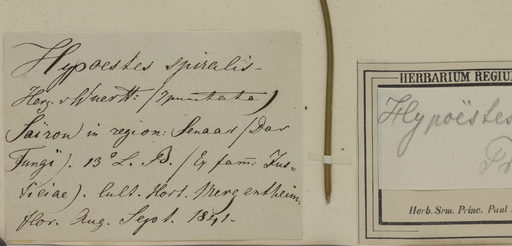 Hypoestes spiralis
Herz. v. Wuertt: (punctata)
in region: Senaar (Dar
Fungi). 13° L. B. (Ex fam: Jus-
ticiae). Cult. Hort. Mergentheim.
flor. Aug. Sept. 1841.
HERBARIUM REGIU
Hypoëstes
Herb. Srm. Princ. Paul